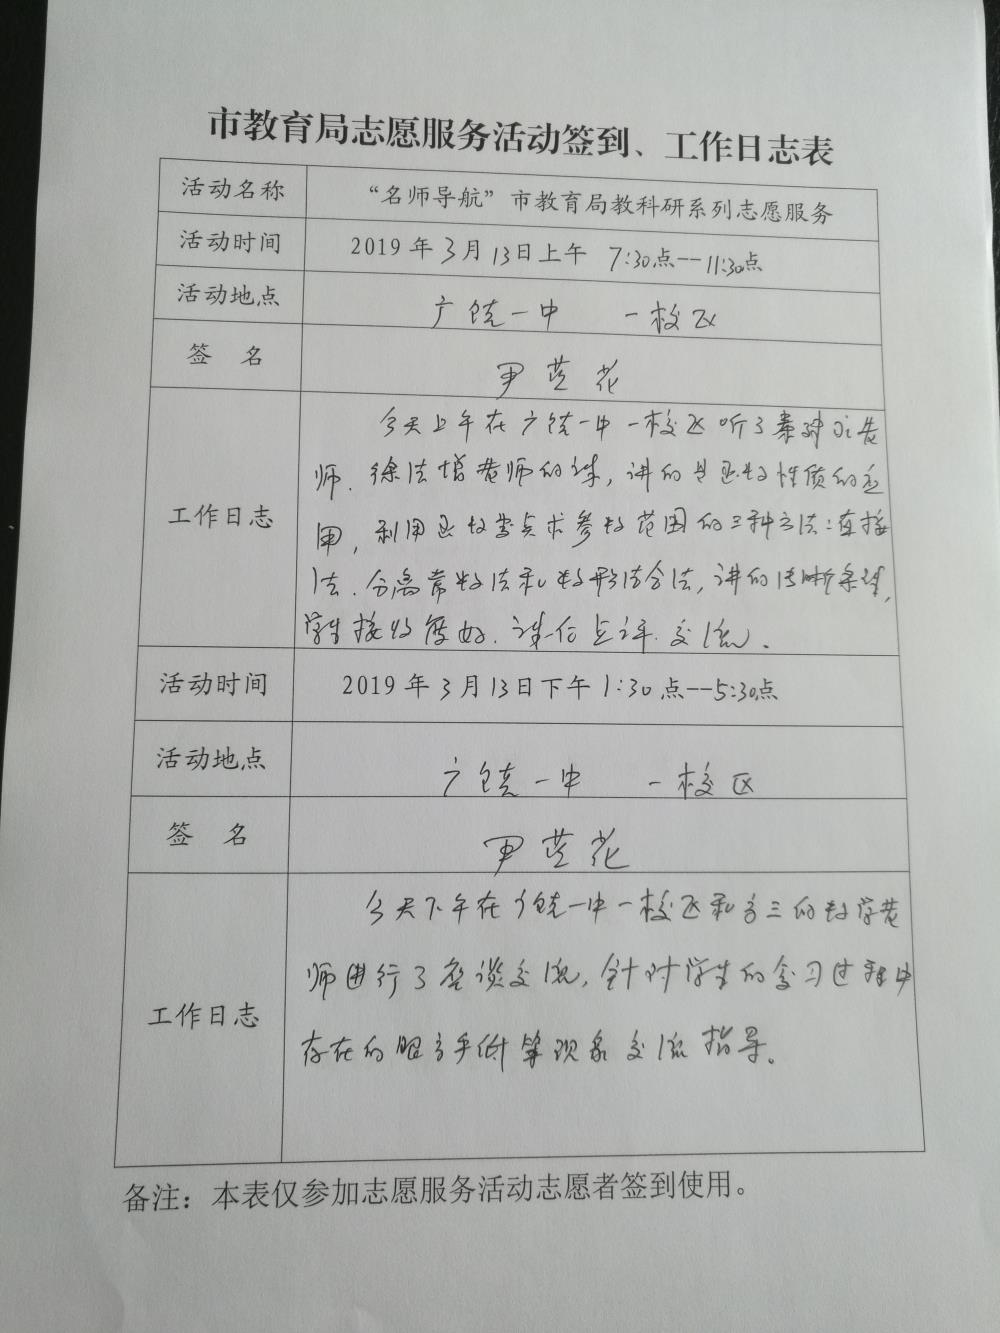 市教育局志愿服务活动签到、工作日志表
活动名称 “名师导航”市教育局教科研系列志愿服务
活动时间 2019年3月13日上午 7:30点--11:30点
活动地点 广饶一中 一校区
签 名 尹芸花
今天上午在广饶一中一校区听了秦 老
师、徐法增老师的课,讲的是函数性质的应
工作日志
用,利用函数零点求参数范围的三种方法:直接
法、分离常数法和数形结合法,讲的清晰条理,
学生接收度好、课后点评、交流。
活动时间 2019年3月13日下午 1:30点--5:30点
活动地点 广饶一中 一校区
签 名 尹芸花
今天下午在广饶一中一校区和高三的数学老
师进行了座谈交流,针对学生的学习过程中
工作日志
存在的眼高手低等现象交流指导。
备注:本表仅参加志愿服务活动志愿者签到使用。